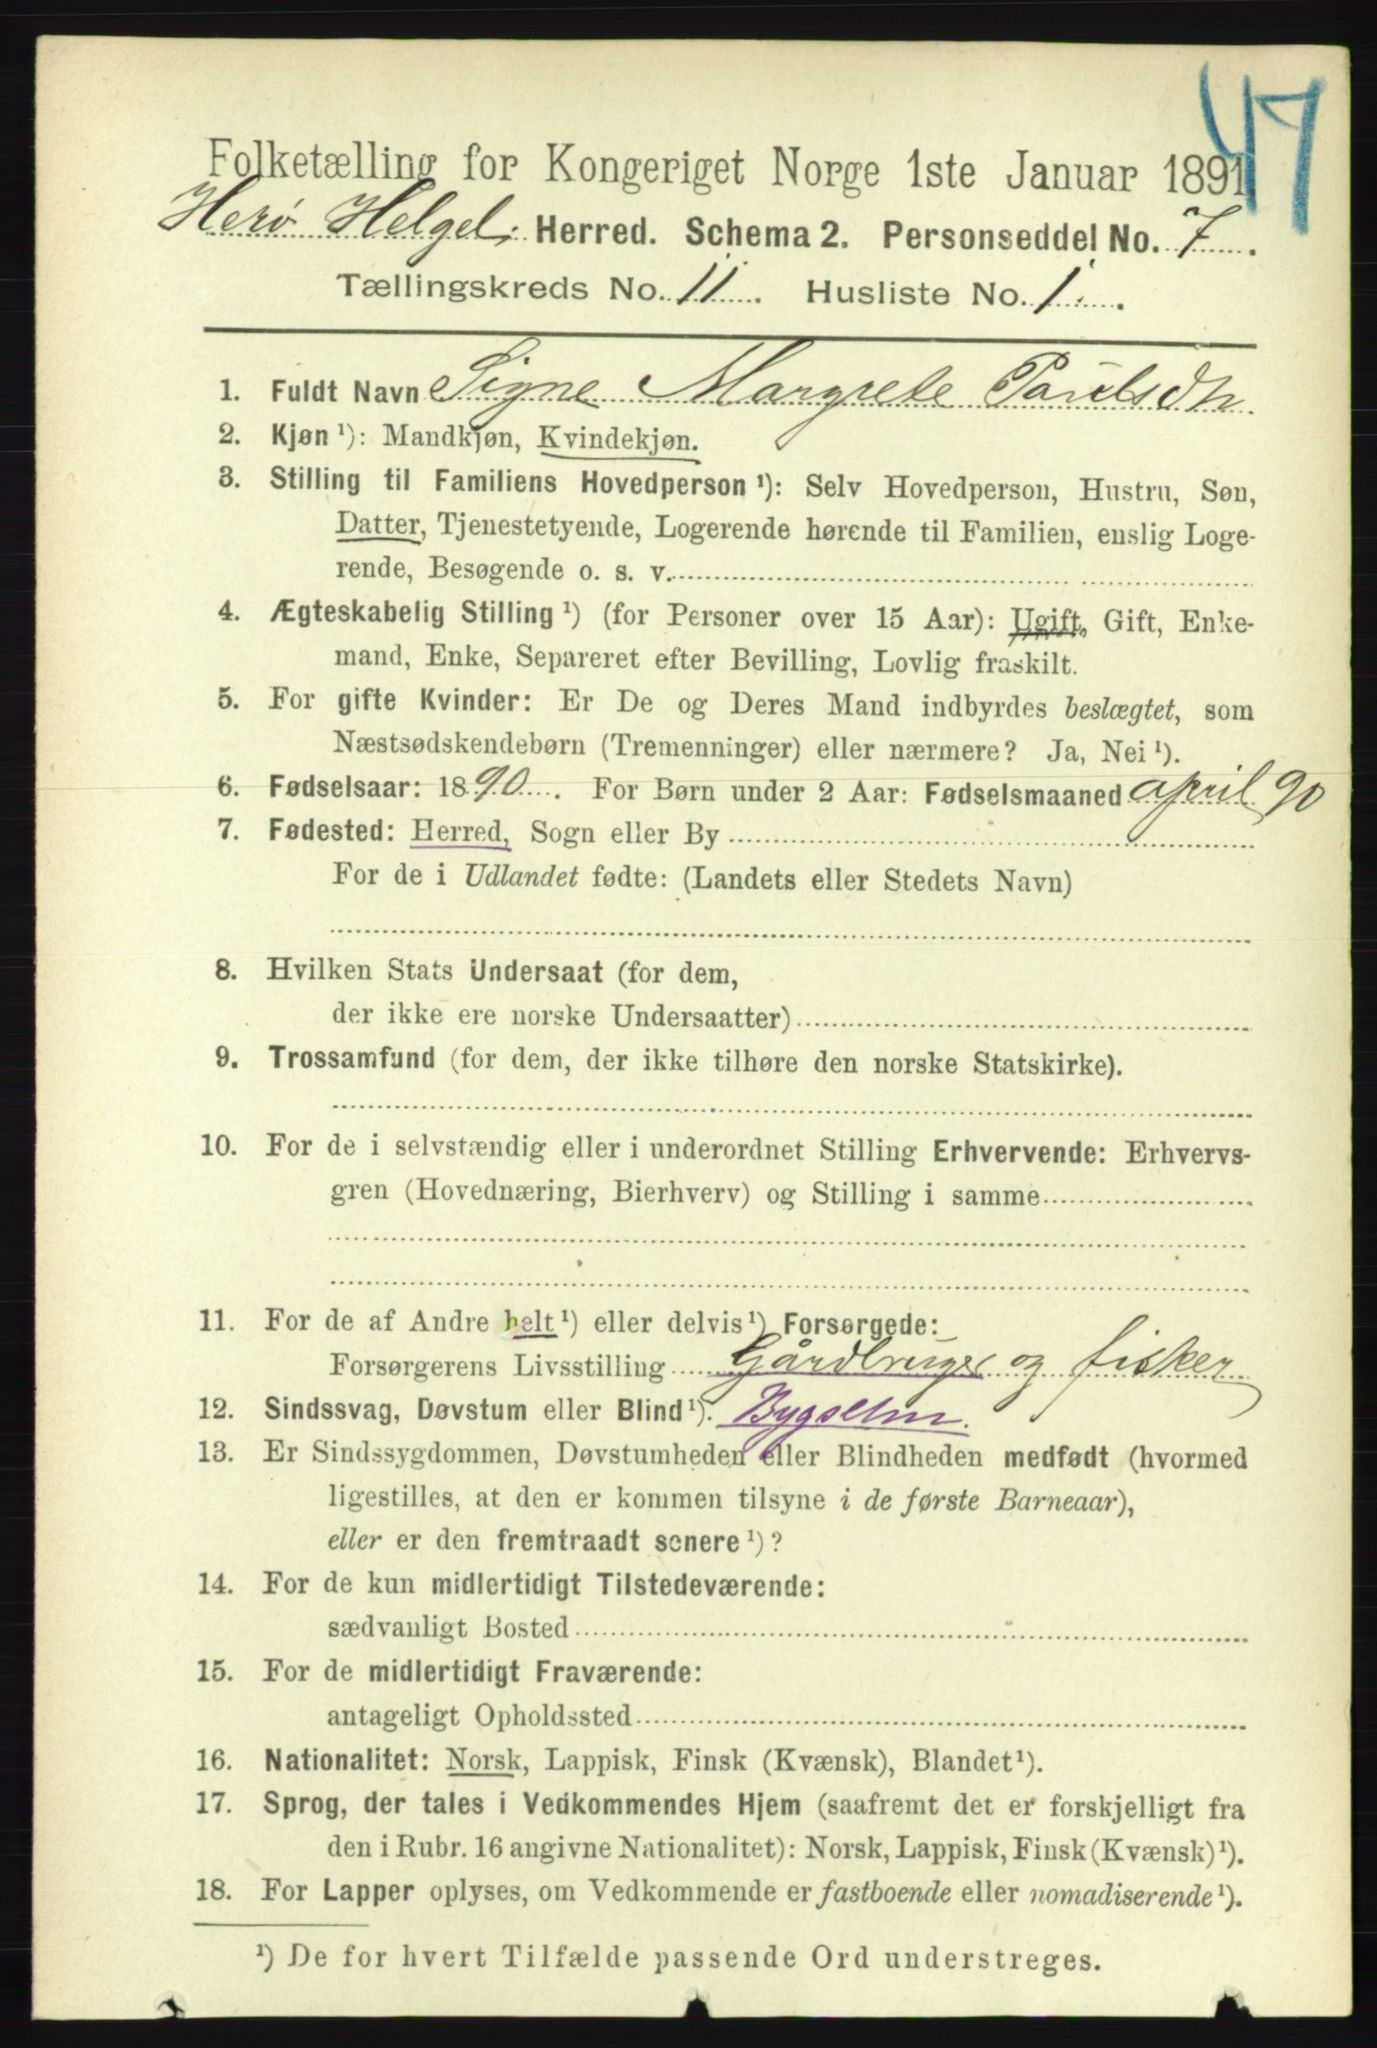 47
Folketælling for Kongeriget Norge 1ste Januar 1891
Herø Helgel. Herred. Schema 2. Personseddel No. 7.
Tællingskreds No. 11. Husliste No. 1.
1. Fuldt Navn Signe Margrete Paulsdtr
2. Kjøn ¹): Mandkjøn, Kvindekjøn.
3. Stilling til Familiens Hovedperson ¹): Selv Hovedperson, Hustru, Søn,
Datter, Tjenestetyende, Logerende hørende til Familien, enslig Loge-
rende, Besøgende o. s. v.
4. Ægteskabelig Stilling ¹) (for Personer over 15 Aar): Ugift, Gift, Enke-
mand, Enke, Separeret efter Bevilling, Lovlig fraskilt.
5. For gifte Kvinder: Er De og Deres Mand indbyrdes beslægtet, som
Næstsødskendebørn (Tremenninger) eller nærmere? Ja, Nei ¹).
6. Fødselsaar: 1890. For Børn under 2 Aar: Fødselsmaaned april 90
7. Fødested: Herred, Sogn eller By
For de i Udlandet fødte: (Landets eller Stedets Navn)
8. Hvilken Stats Undersaat (for dem,
der ikke ere norske Undersaatter)
9. Trossamfund (for dem, der ikke tilhøre den norske Statskirke).
10. For de i selvstændig eller i underordnet Stilling Erhvervende: Erhvervs-
gren (Hovednæring, Bierhverv) og Stilling i samme
11. For de af Andre helt ¹) eller delvis ¹) Forsørgede:
Forsørgerens Livsstilling Gårdbruger og fisker
12. Sindssvag, Døvstum eller Blind ¹). Bygselm.
13. Er Sindssygdommen, Døvstumheden eller Blindheden medfødt (hvormed
ligestilles, at den er kommen tilsyne i de første Barneaar),
eller er den fremtraadt senere ¹)?
14. For de kun midlertidigt Tilstedeværende:
sædvanligt Bosted
15. For de midlertidigt Fraværende:
antageligt Opholdssted
16. Nationalitet: Norsk, Lappisk, Finsk (Kvænsk), Blandet ¹).
17. Sprog, der tales i Vedkommendes Hjem (saafremt det er forskjelligt fra
den i Rubr. 16 angivne Nationalitet): Norsk, Lappisk, Finsk (Kvænsk) ¹).
18. For Lapper oplyses, om Vedkommende er fastboende eller nomadiserende ¹).
¹) De for hvert Tilfælde passende Ord understreges.